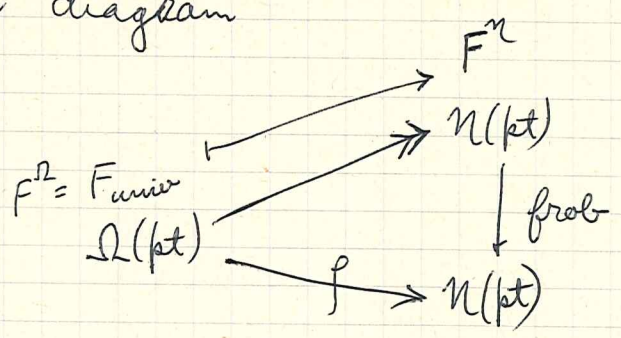 diagram
F^η
η(pt)
F^Ω = F_univ
Ω(pt)
frob
ρ
η(pt)